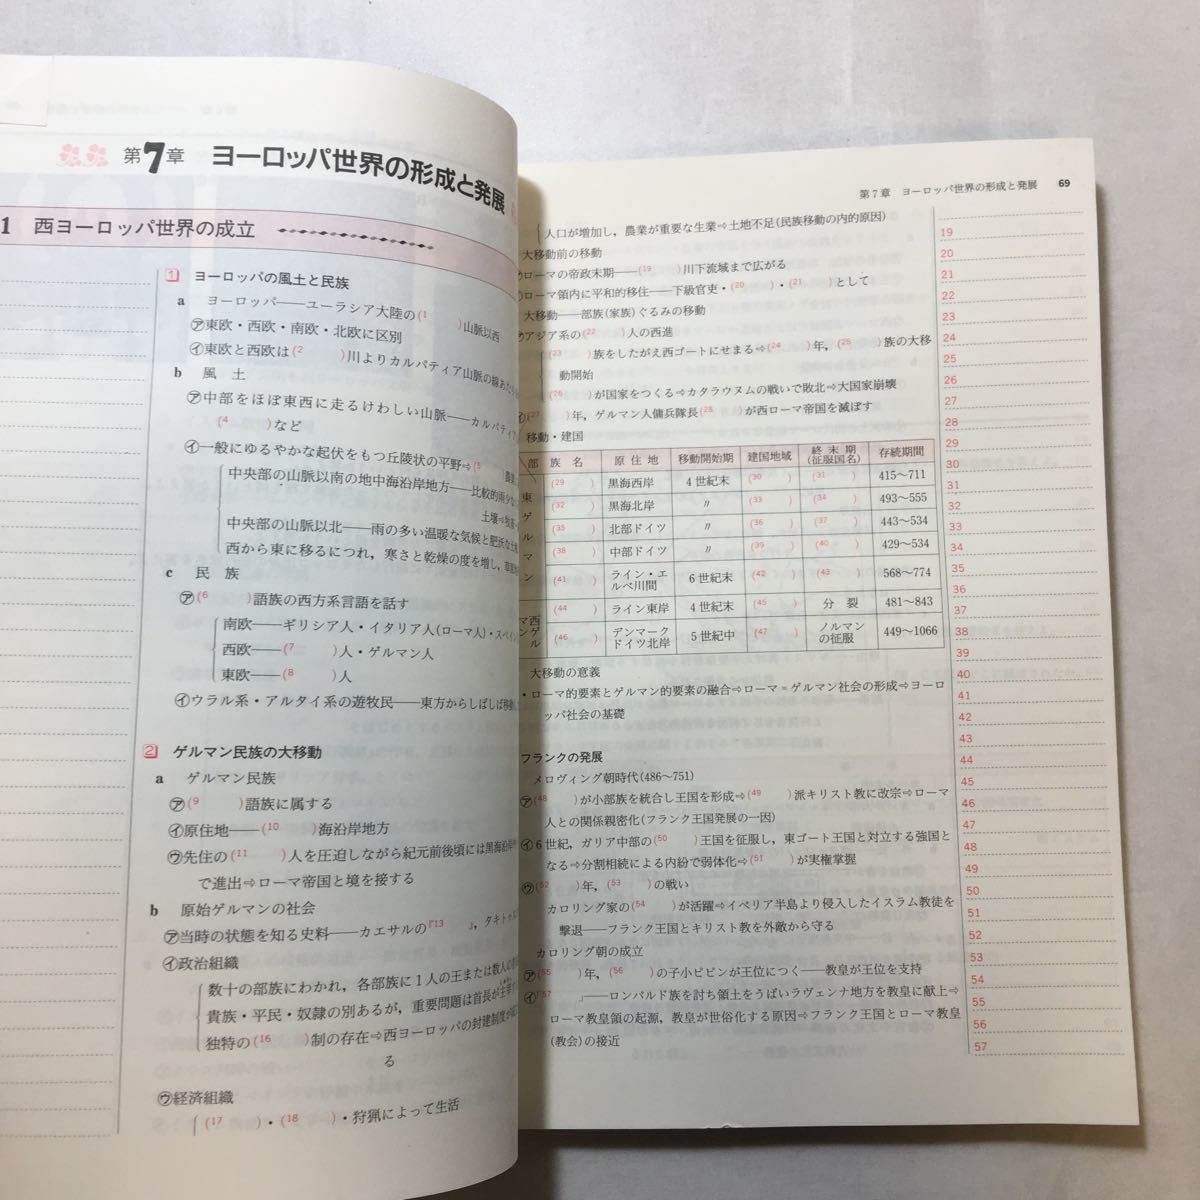 第7章 ヨーロッパ世界の形成と発展
1 西ヨーロッパ世界の成立
1 ヨーロッパの風土と民族
a ヨーロッパ――ユーラシア大陸の(1 )山脈以西
㋐東欧・西欧・南欧・北欧に区別
㋑東欧と西欧は(2 )川よりカルパティア山脈の線
b 風土
㋐中部をほぼ東西に走るけわしい山脈――カルパティア
(4 )など
㋑一般にゆるやかな起伏をもつ丘陵状の平野⇨(5
中央部の山脈以南の地中海沿岸地方――比較的雨
土壌⇨牧
中央部の山脈以北――雨の多い温暖な気候と肥沃な土
西から東に移るにつれ，寒さと乾燥の度を増し，
c 民族
㋐(6 )語族の西方系言語を話す
南欧――ギリシア人・イタリア人(ローマ人)・スペイン
西欧――(7 )人・ゲルマン人
東欧――(8 )人
㋑ウラル系・アルタイ系の遊牧民――東方からしばしば
2 ゲルマン民族の大移動
a ゲルマン民族
㋐(9 )語族に属する
㋑原住地――(10 )海沿岸地方
㋒先住の(11 )人を圧迫しながら紀元前後頃には黒海沿岸
で進出⇨ローマ帝国と境を接する
b 原始ゲルマンの社会
㋐当時の状態を知る史料――カエサルの『13 』，タキトゥス
㋑政治組織
数十の部族にわかれ，各部族に1人の王または数人の
貴族・平民・奴隷の別あるが，重要問題は首長が主宰
独特の(16 )制の存在⇨西ヨーロッパの封建制度が
る
㋒経済組織
(17 )・(18 )・狩猟によって生活
第7章 ヨーロッパ世界の形成と発展 69
人口が増加し，農業が重要な生業⇨土地不足(民族移動の内的原因)
大移動前の移動
ローマの帝政末期――(19 )川下流域まで広がる
ローマ領内に平和的移住――下級官吏・(20 )・(21 )として
大移動――部族(家族)ぐるみの移動
アジア系の(22 )人の西進
(23 )族をしたがえ西ゴートにせまる⇨(24 )年，(25 )族の大移
動開始
(26 )が国家をつくる⇨カタラウヌムの戦いで敗北⇨大国家崩壊
㋑(27 )年，ゲルマン人傭兵隊長(28 )が西ローマ帝国を滅ぼす
移動・建国
部族名 原住地 移動開始期 建国地域 終末期(征服国名) 存続期間
東ゲルマン (29 ) 黒海西岸 4世紀末 (30 ) (31 ) 415～711
(32 ) 黒海北岸 〃 (33 ) (34 ) 493～555
(35 ) 北部ドイツ 〃 (36 ) (37 ) 443～534
(38 ) 中部ドイツ 〃 (39 ) (40 ) 429～534
(41 ) ライン・エルベ川間 6世紀末 (42 ) (43 ) 568～774
西ゲルマン (44 ) ライン東岸 4世紀末 (45 ) 分裂 481～843
(46 ) デンマークドイツ北岸 5世紀中 (47 ) ノルマンの征服 449～1066
大移動の意義
・ローマ的要素とゲルマン的要素の融合⇨ローマ＝ゲルマン社会の形成⇨ヨーロ
ッパ社会の基礎
フランクの発展
メロヴィング朝時代(486～751)
㋐(48 )が小部族を統合し王国を形成⇨(49 )派キリスト教に改宗⇨ローマ
人との関係親密化(フランク王国発展の一因)
㋑6世紀，ガリア中部の(50 )王国を征服し，東ゴート王国と対立する強国と
なる⇨分割相続による内紛で弱体化⇨(51 )が実権掌握
㋒(52 )年，(53 )の戦い
カロリング家の(54 )が活躍⇨イベリア半島より侵入したイスラム教徒を
撃退――フランク王国とキリスト教を外敵から守る
カロリング朝の成立
㋐(55 )年，(56 )の子小ピピンが王位につく――教皇が王位を支持
㋑『57 』――ロンバルド族を討ち領土をうばいラヴェンナ地方を教皇に献上⇨
ローマ教皇領の起源，教皇が世俗化する原因⇨フランク王国とローマ教皇
(教会)の接近
19
20
21
22
23
24
25
26
27
28
29
30
31
32
33
34
35
36
37
38
39
40
41
42
43
44
45
46
47
48
49
50
51
52
53
54
55
56
57